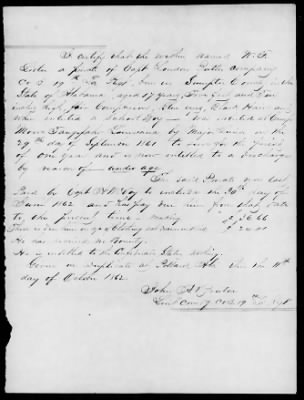 I certify that the within named W. F.
a private of Capt Butler Company
Co I 19th La Regt born in Sumpter County in the
State of Alabama aged 17 years, Five feet and
inches high, Fair Complexion, Blue eyes, Black Hair and
when enlisted a School Boy was enlisted at Camp
Moore Tangipaho Louisiana by Major on the
29th day of September 1861 to serve for the period
of One year and is now entitled to a Discharge
by reason of under age
The said Private was last
Paid by Capt to include the 30th day of
June 1862 and has pay due him from that date
to the present time
There is due him or
He has received no Bounty
He is indebted to the Confederate States nothing
Given in duplicate at Pollard Ala this the 11th
day of October 1862
John A
Lieut Comdg Co I 19 La Regt